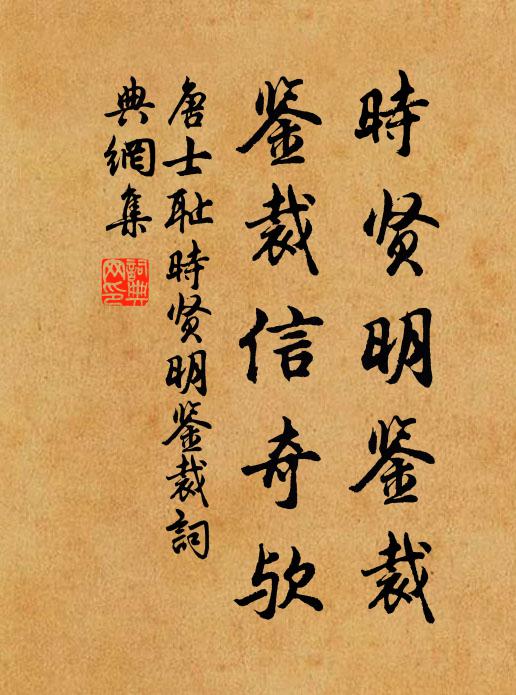 時贤明鉴裁
鉴裁信奇欤
唐士耻時贤明鉴裁詞
典網集
詞典
网印